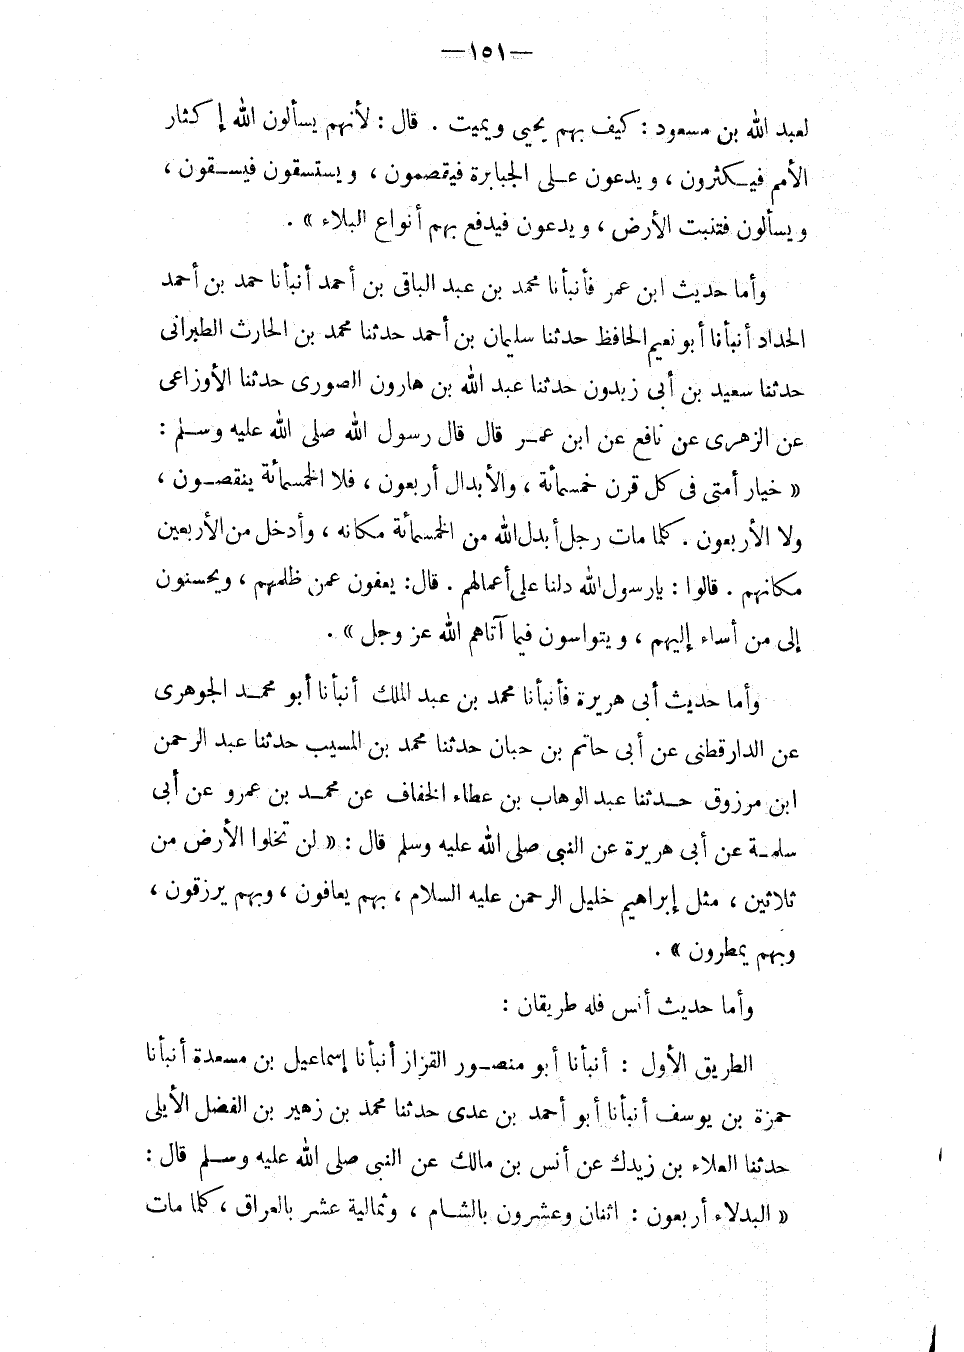 —١٥١—
لعبد الله بن مسعود : كيف بهم يحيي ويميت . قال : لأنهم يسألون الله إكثار
الأمم فيكثرون ، ويدعون على الجبابرة فيقصمون ، ويستسقون فيسقون ،
ويسألون فتنبت الأرض ، ويدعون فيدفع بهم أنواع البلاء » .
وأما حديث ابن عمر فأنبأنا محمد بن عبد الباقى بن أحمد أنبأنا حمد بن أحمد
الحداد أنبأنا أبو نعيم الحافظ حدثنا سليمان بن أحمد حدثنا محمد بن الحارث الطبرانى
حدثنا سعيد بن أبى زيدون حدثنا عبد الله بن هارون الصورى حدثنا الأوزاعى
عن الزهرى عن نافع عن ابن عمر قال قال رسول الله صلى الله عليه وسلم :
« خيار أمتى فى كل قرن خمسمائة ، والأبدال أربعون ، فلا الخمسمائة ينقصون ،
ولا الأربعون . كلما مات رجل أبدل الله من الخمسمائة مكانه ، وأدخل من الأربعين
مكانهم . قالوا : يارسول الله دلنا على أعمالهم . قال : يعفون عمن ظلمهم ، ويحسنون
إلى من أساء إليهم ، ويتواسون فيما آتاهم الله عز وجل » .
وأما حديث أبى هريرة فأنبأنا محمد بن عبد الملك أنبأنا أبو محمد الجوهرى
عن الدارقطنى عن أبى حاتم بن حبان حدثنا محمد بن المسيب حدثنا عبد الرحمن
ابن مرزوق حدثنا عبد الوهاب بن عطاء الخفاف عن محمد بن عمرو عن أبى
سلمة عن أبى هريرة عن النبى صلى الله عليه وسلم قال : « لن تخلوا الأرض من
ثلاثين ، مثل إبراهيم خليل الرحمن عليه السلام ، بهم يعافون ، وبهم يرزقون ،
وبهم يمطرون » .
وأما حديث أنس فله طريقان :
الطريق الأول : أنبأنا أبو منصور القزاز أنبأنا إسماعيل بن مسعدة أنبأنا
حمزة بن يوسف أنبأنا أبو أحمد بن عدى حدثنا محمد بن زهير بن الفضل الأيلى
حدثنا العلاء بن زيدك عن أنس بن مالك عن النبى صلى الله عليه وسلم قال :
« البدلاء أربعون : اثنان وعشرون بالشام ، وثمالية عشر بالعراق ، كلما مات